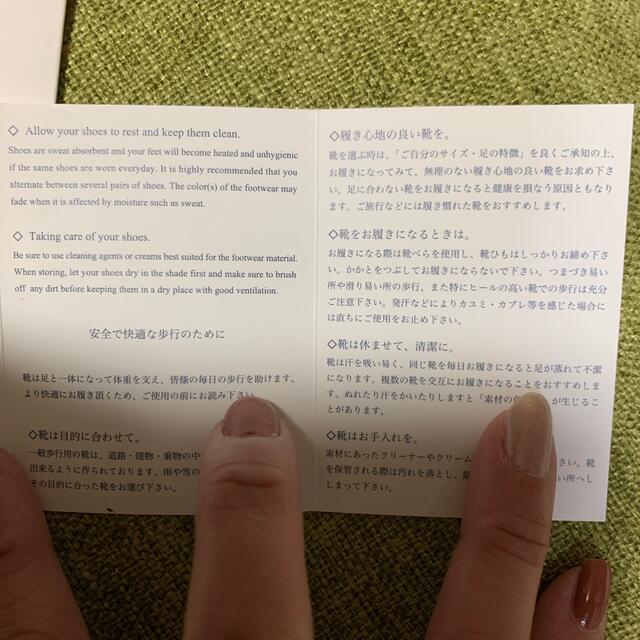 ◇ Allow your shoes to rest and keep them clean.
Shoes are sweat absorbent and your feet will become heated and unhygienic
if the same shoes are worn everyday. It is highly recommended that you
alternate between several pairs of shoes. The color(s) of the footwear may
fade when it is affected by moisture such as sweat.
◇ Taking care of your shoes.
Be sure to use cleaning agents or creams best suited for the footwear material.
When storing, let your shoes dry in the shade first and make sure to brush
off any dirt before keeping them in a dry place with good ventilation.
安全で快適な歩行のために
靴は足と一体になって体重を支え、皆様の毎日の歩行を助けます。
より快適にお履き頂くため、ご使用の前にお読み下さい
◇靴は目的に合わせて。
一般歩行用の靴は、道路・建物・乗物の中
出来るように作られております。雨や雪の
その目的に合った靴をお選び下さい。
◇履き心地の良い靴を。
靴を選ぶ時は、「ご自分のサイズ・足の特徴」を良くご承知の上、
お履きになってみて、無理のない履き心地の良い靴をお求め下さ
い。足に合わない靴をお履きになると健康を損なう原因ともなり
ます。ご旅行などには履き慣れた靴をおすすめします。
◇靴をお履きになるときは。
お履きになる際は靴べらを使用し、靴ひもはしっかりお締め下さ
い。かかとをつぶしてお履きにならないで下さい。つまづき易い
所や滑り易い所の歩行、また特にヒールの高い靴での歩行は充分
ご注意下さい。発汗などによりカユミ・カブレ等を感じた場合に
は直ちにご使用をお止め下さい。
◇靴は休ませて、清潔に。
靴は汗を吸い易く、同じ靴を毎日お履きになると足が蒸れて不潔
になります。複数の靴を交互にお履きになることをおすすめしま
す。ぬれたり汗をかいたりしますと「素材の が生じるこ
とがあります。
◇靴はお手入れを。
素材にあったクリーナーやクリーム さい。靴
を保管される際は汚れを落とし、 い所へし
まって下さい。